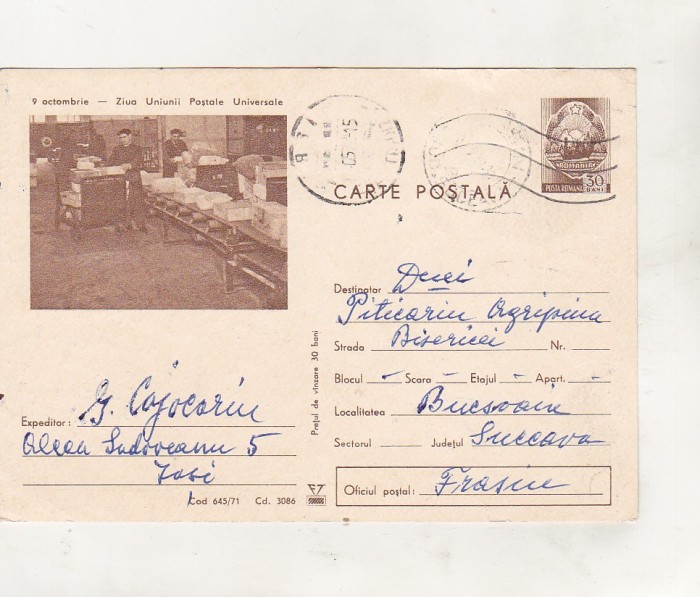 9 octombrie — Ziua Uniunii Poştale Universale
CARTE POŞTALĂ
ROMANIA
POSTA ROMANA 30 BANI
Destinatar Dnei
Piticariu Agripina
Strada Bisericei Nr.
Blocul - Scara - Etajul - Apart. -
Localitatea Bucsoaia
Sectorul Judeţul Suceava
Oficiul poştal: Frasin
Expeditor: G. Cojocariu
Aleea Sadoveanu 5
Iasi
Preţul de vînzare 30 bani
Cod 645/71 Cd. 3086